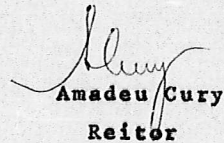 Amadeu Cury
Reitor